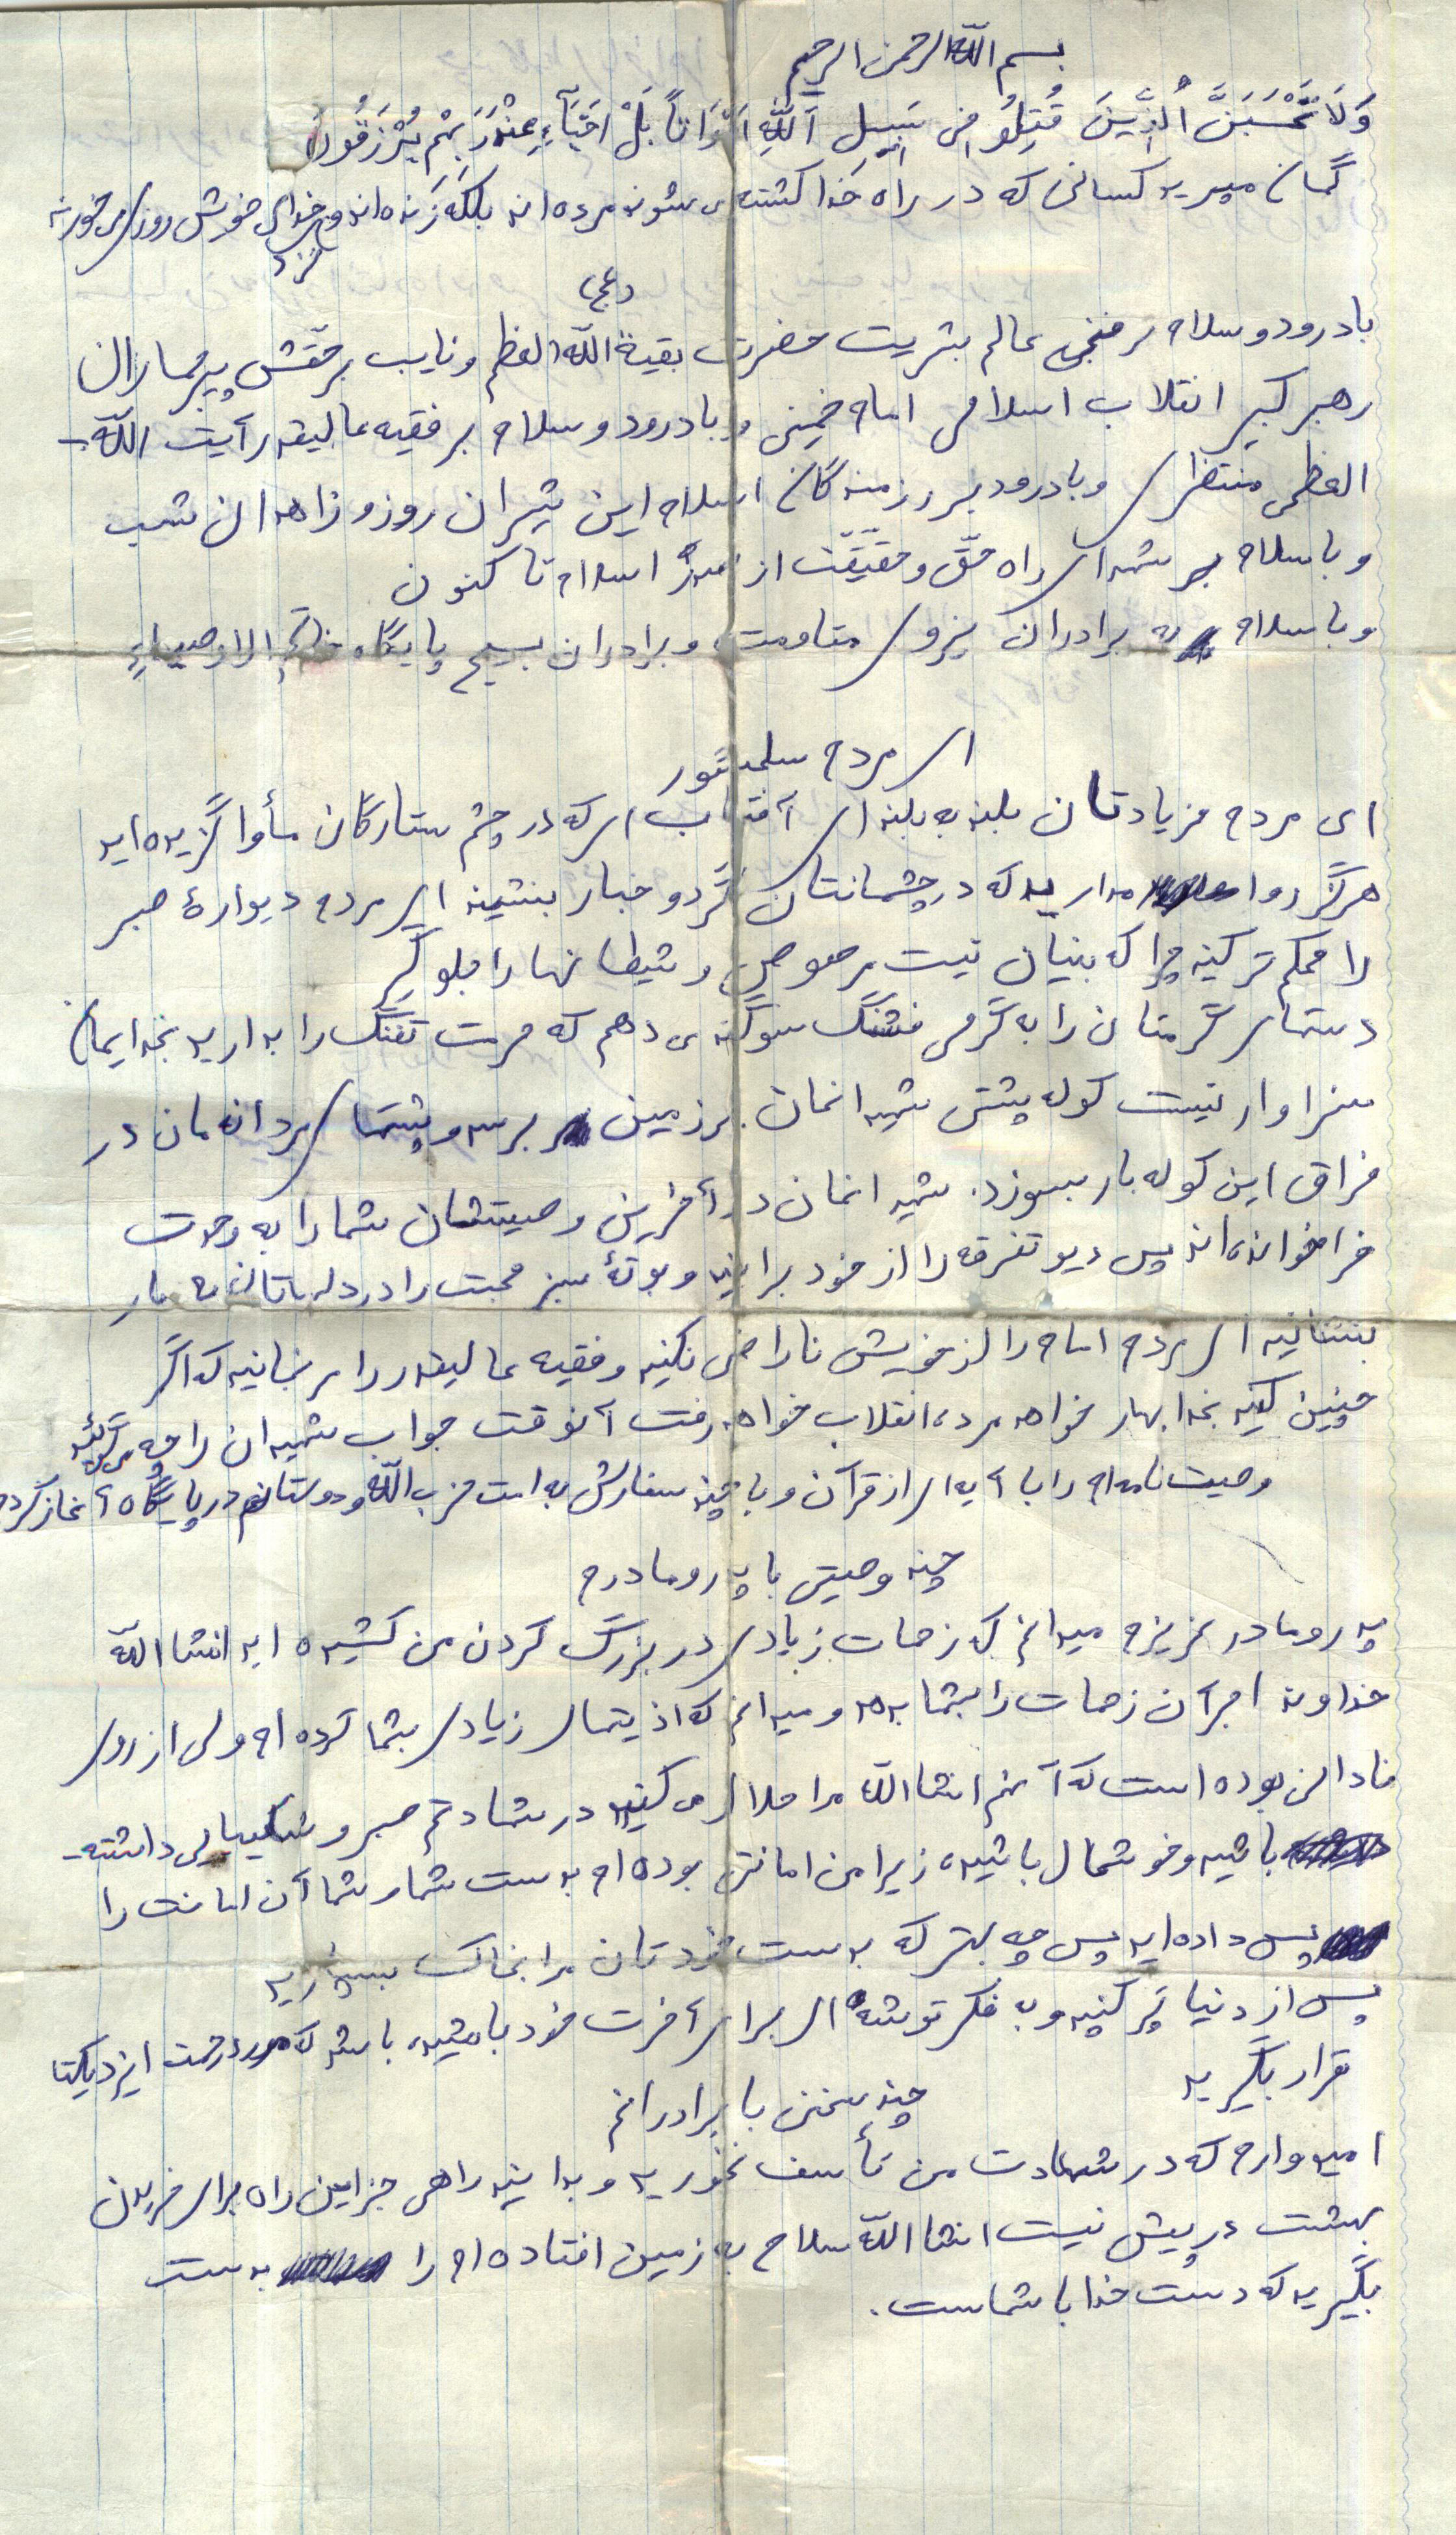 بسم الله الرحمن الرحیم
وَلَا تَحْسَبَنَّ الَّذِینَ قُتِلُو فِی سَبِیلِ اَللهِ اَمْوَاتاً بَلْ اَحْیَآءٍ عِنْدَ رَبِهْمْ یُرْزَقُونَ
گمان مبرید کسانی که در راه خدا کشته می شوند مرده اند بلکه زنده اند و نزد خدای خویش روزی می خورند
(عج)
با درود و سلام بر منجی عالم بشریت حضرت بقیة الله العظم و نایب برحقش پیر جماران
رهبر کبیر انقلاب اسلامی امام خمینی و با درود و سلام بر فقیه عالیقدر آیت الله -
العظمی منتظری و با درود بر رزمندگان اسلام این شیران روز و زاهدان شب
و با سلام بر شهدای راه حقّ و حقیقّت از صدر اسلام تا کنون
و با سلام به برادران نیروی مقاومت و برادران بسیج پایگاه خاتم الاوصیاء
ای مردم سلحشور
ای مردم فریادتان بلند به بلندای آفتاب ای که در چشم ستارگان مأوا گزیده اید
هرگز روا مدارید که در چشمانتان گرد و غبار بنشیند ای مردم دیوارهٔ صبر
را محکم تر کنید چرا که بنیان نیست مرصوص و شیطانها را جلوگیر
دستهای گرمتان را به گرمی فشنگ سوگند می دهم که حرمت تفنگ را بدارید بخدا ایمان
سزاوار نیست کوله پشتی شهیدانمان بر زمین برسد و پشتهای مردانه مان در
فراق این کوله بار بسوزد. شهیدانمان در آخرین وصیتشان شما را به وحدت
فراخوانده اند پس دیو تفرقه را از خود برانید و بوتهٔ سبز محبت را در دلهاتان به بار
بنشانید ای مردم امام را از خویش ناراضی نکنید و فقیه عالیقدر را مرنجانید که اگر
چنین کنید بخدا بهار خواهد مرد، انقلاب خواهد رفت آنوقت جواب شهیدان را چه می گوئید
وصیت نامه ام را با آیه ای از قرآن و با چند سفارش به امت حزب الله و دوستانم در پایگاه آغاز کردم
چند وصیتی با پدر و مادرم
پدر و مادر عزیزم میدانم که زحمات زیادی در بزرگ کردن من کشیده اید انشا الله
خداوند اجر آن زحمات را بشما بدهد و میدانم که اذیتهای زیادی بشما کرده ام ولی از روی
نادانی بوده است که آنهم انشا الله مرا حلال می کنید در شهادتم صبر و شکیبایی داشته -
باشید و خوشحال باشید، زیرا من امانتی بوده ام بدست شما و شما آن امانت را
پس داده اید پس چه بهتر که بدست خودتان مرا بخاک بسپارید
پس از دنیا پَر کنید و به فکر توشه ای برای آخرت خود باشید، باشد که مورد رحمت ایزد یکتا
قرار بگیرید
چند سخنی با برادرانم
امیدوارم که در شهادت من تأسف نخورید و بدانید راهی جز این راه برای خریدن
بهشت در پیش نیست انشا الله سلاح به زمین افتاده ام را بدست
بگیرید که دست خدا با شماست.